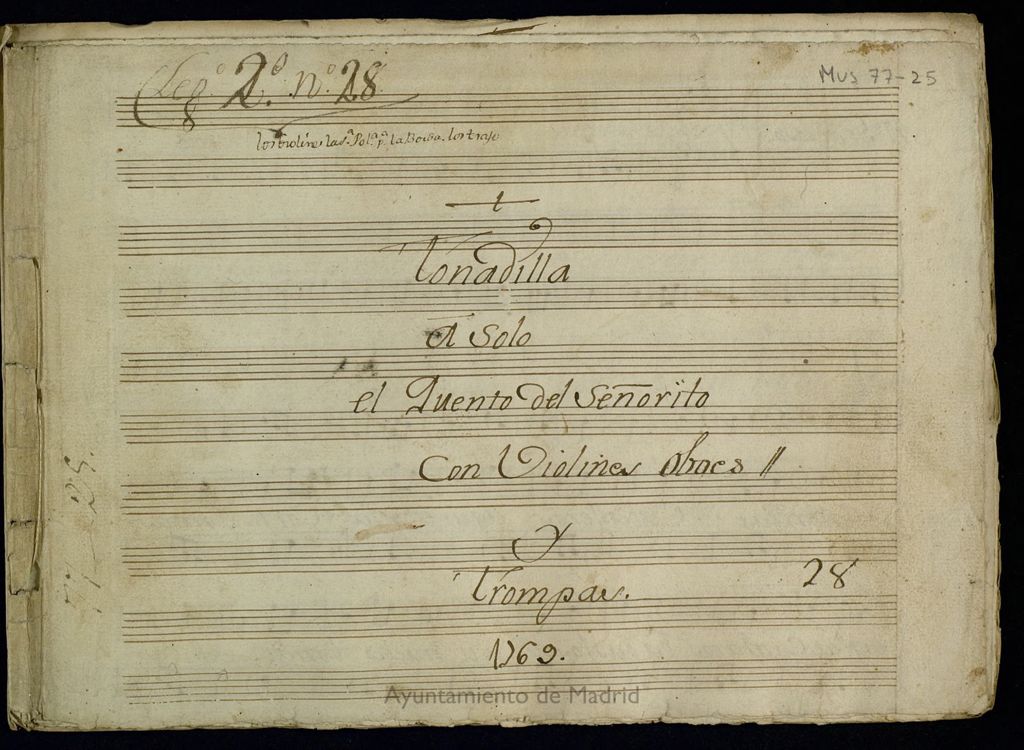 Leg.º 2.º n.º 28
Mus 77-25
8
los violines
la Borda. los trajo
Tonadilla
A Solo
el Quento del Señorito
Con Violines Oboes //
Y
Trompas.
28
1769.
77-25.
Ayuntamiento de Madrid